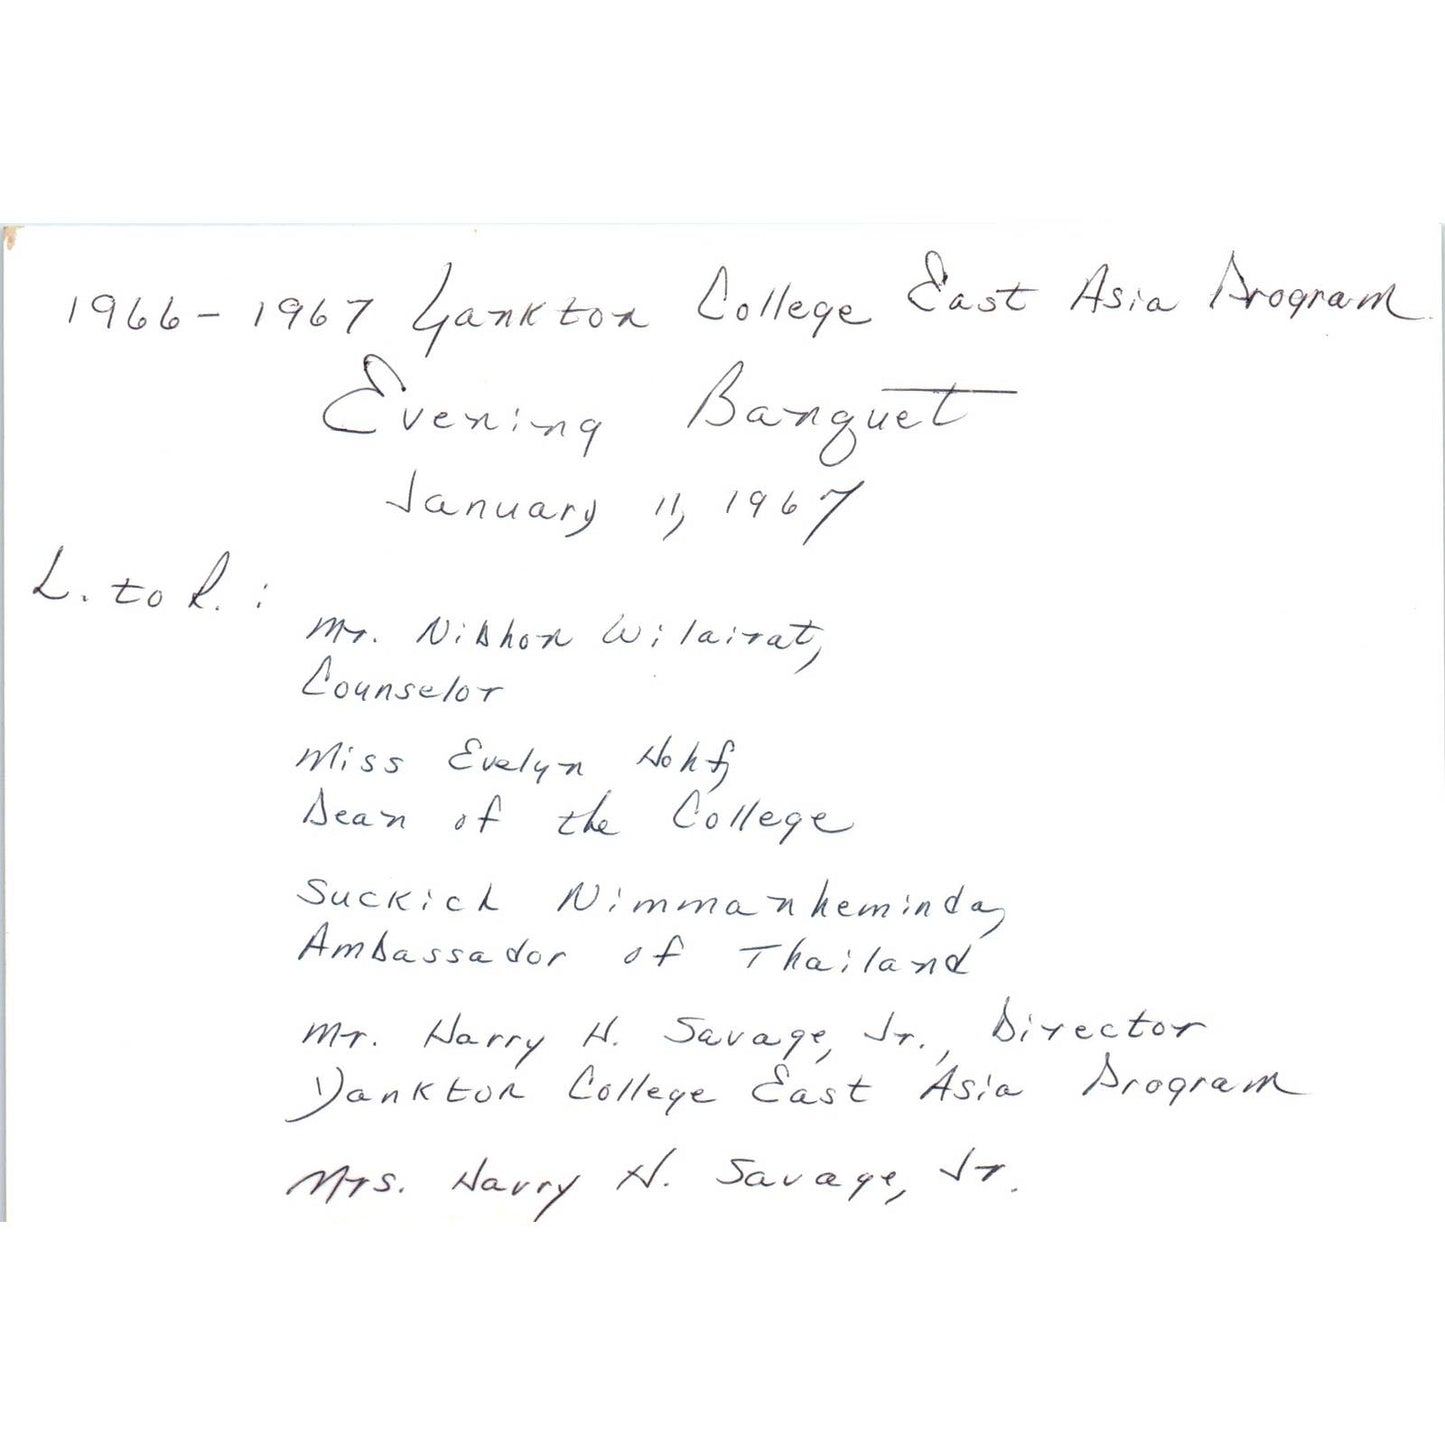 1966-1967 Yankton College East Asia Program
Evening Banquet
January 11, 1967
L. to R. :
Mr. Nibhon Wilairat,
Counselor
Miss Evelyn Hohf,
Dean of the College
Suckich Nimmanheminda,
Ambassador of Thailand
Mr. Harry H. Savage, Jr., Director
Yankton College East Asia Program
Mrs. Harry H. Savage, Jr.